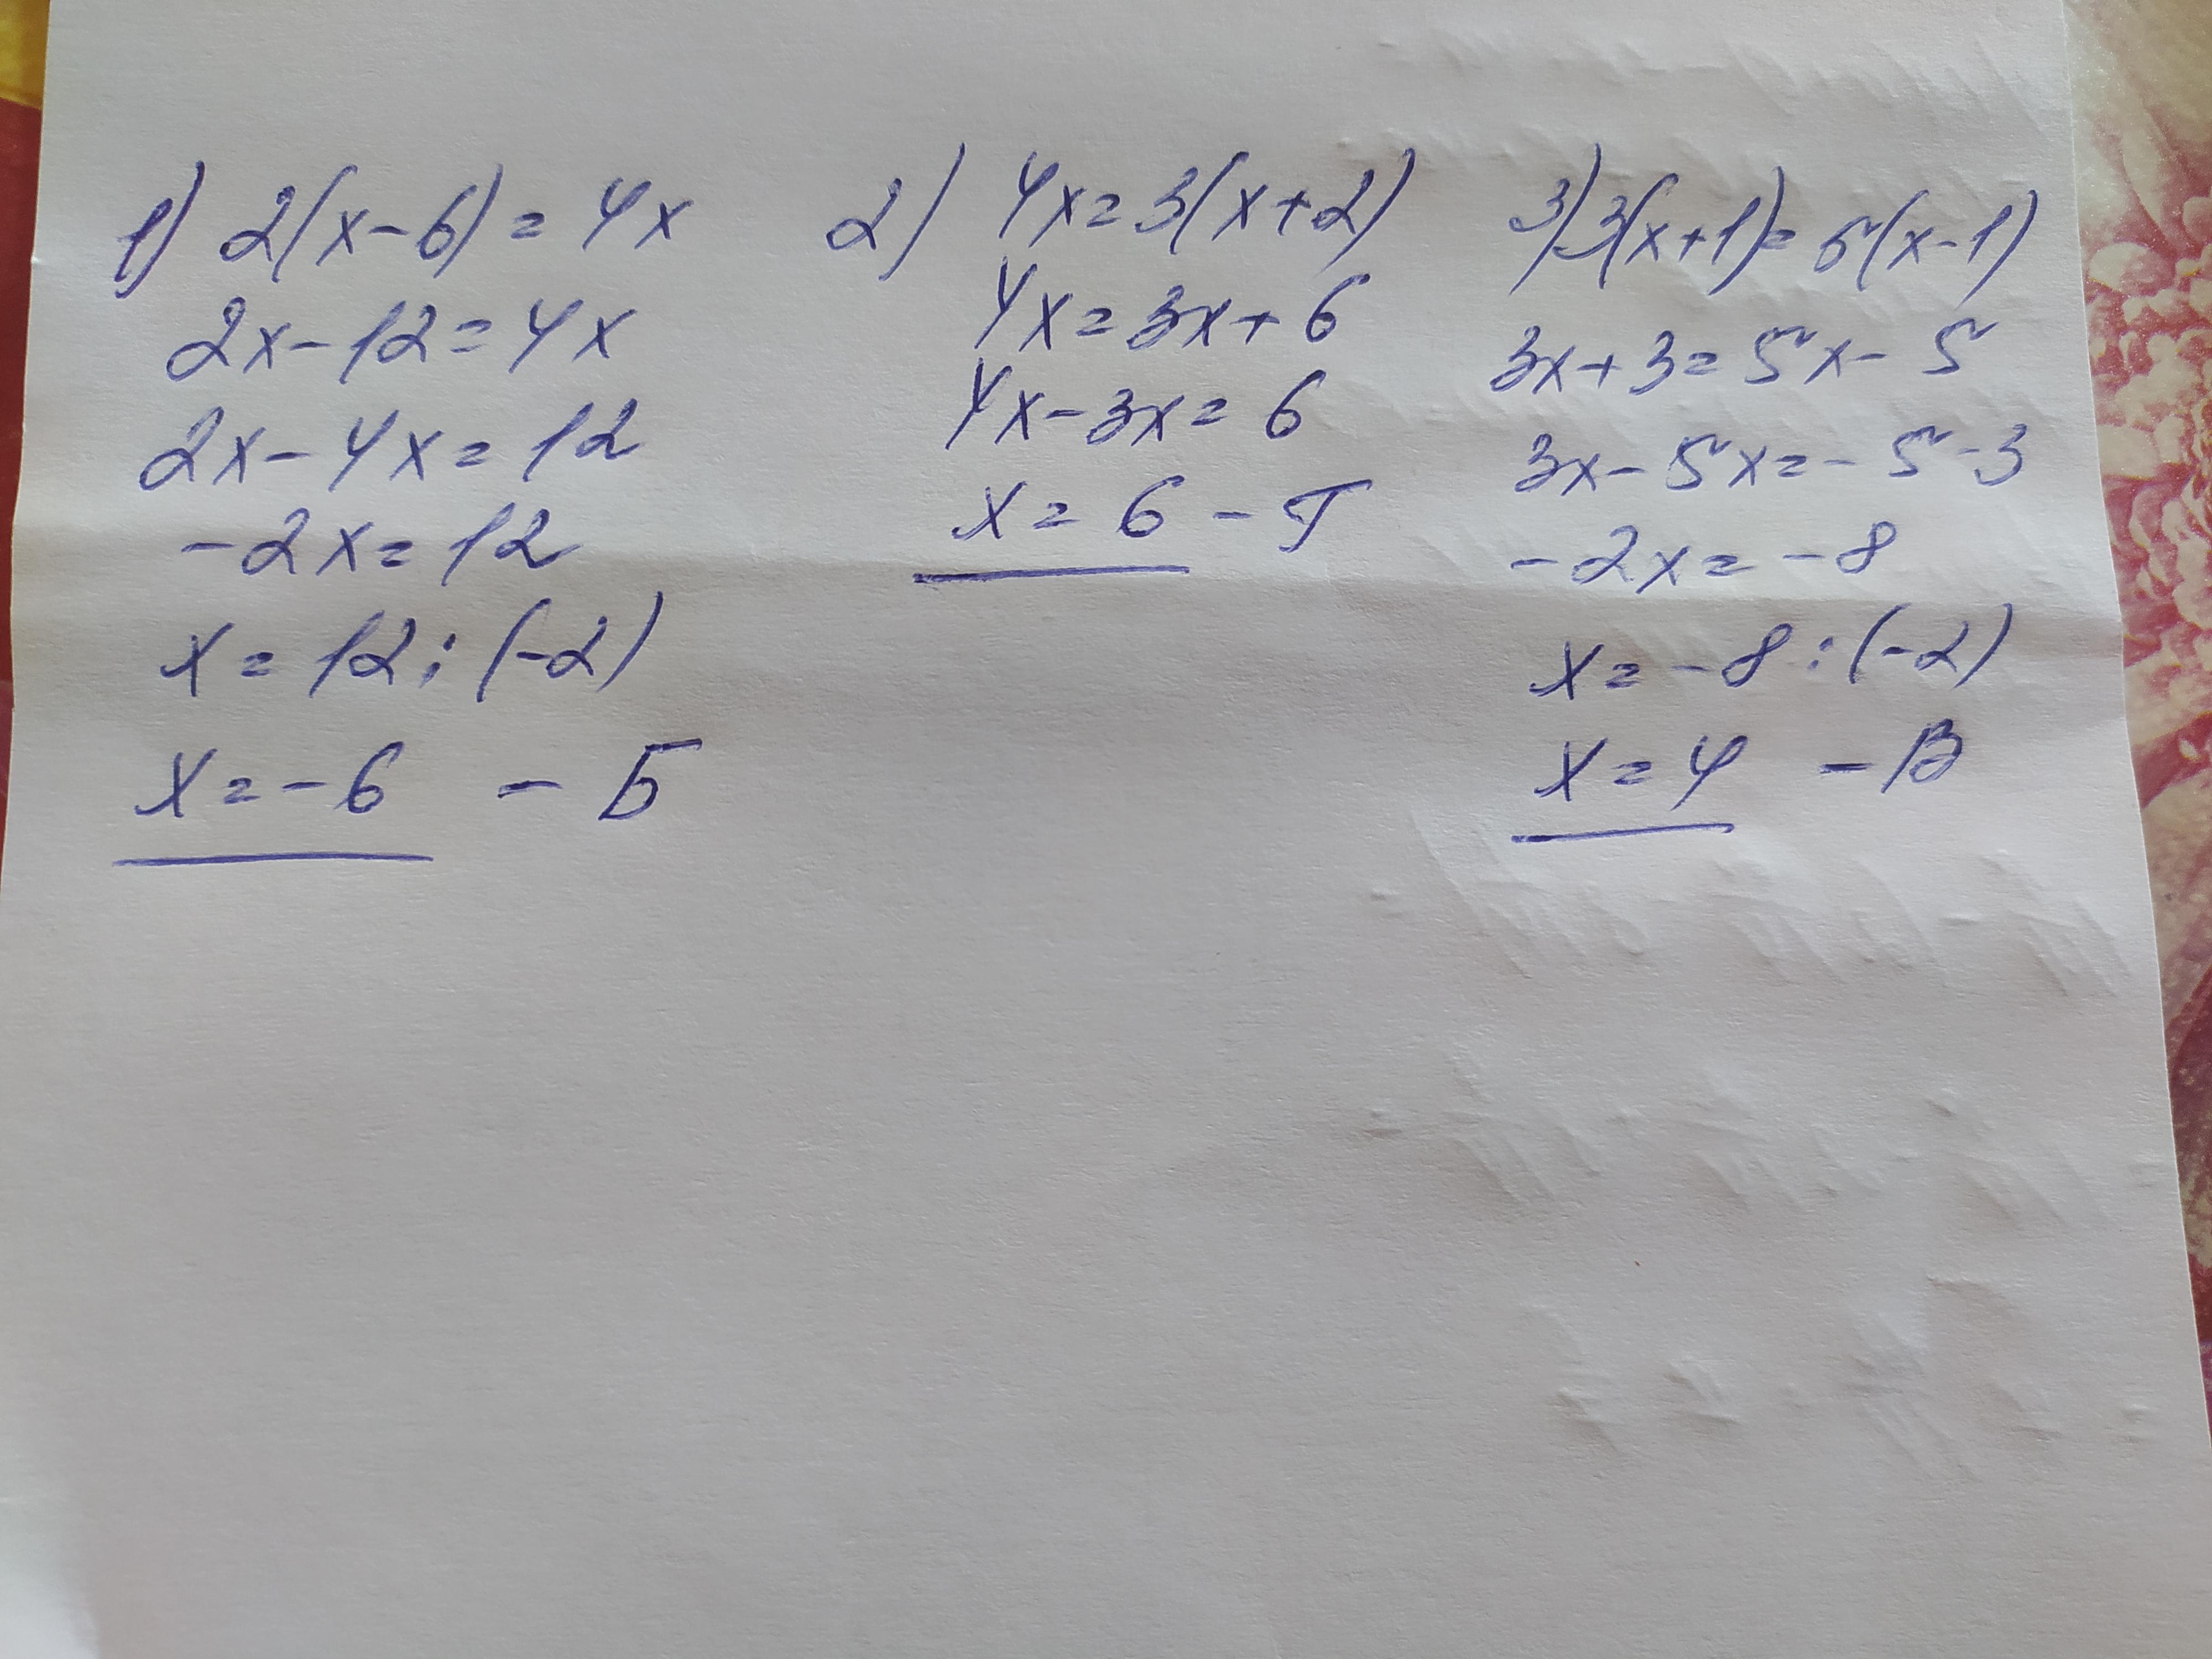 1) 2(x-6)=4x
2x-12=4x
2x-4x=12
-2x=12
x=12:(-2)
x=-6 - Б
2) 4x=3(x+2)
4x=3x+6
4x-3x=6
x=6 - Г
3) 3(x+1)=5(x-1)
3x+3=5x-5
3x-5x=-5-3
-2x=-8
x=-8:(-2)
x=4 - В